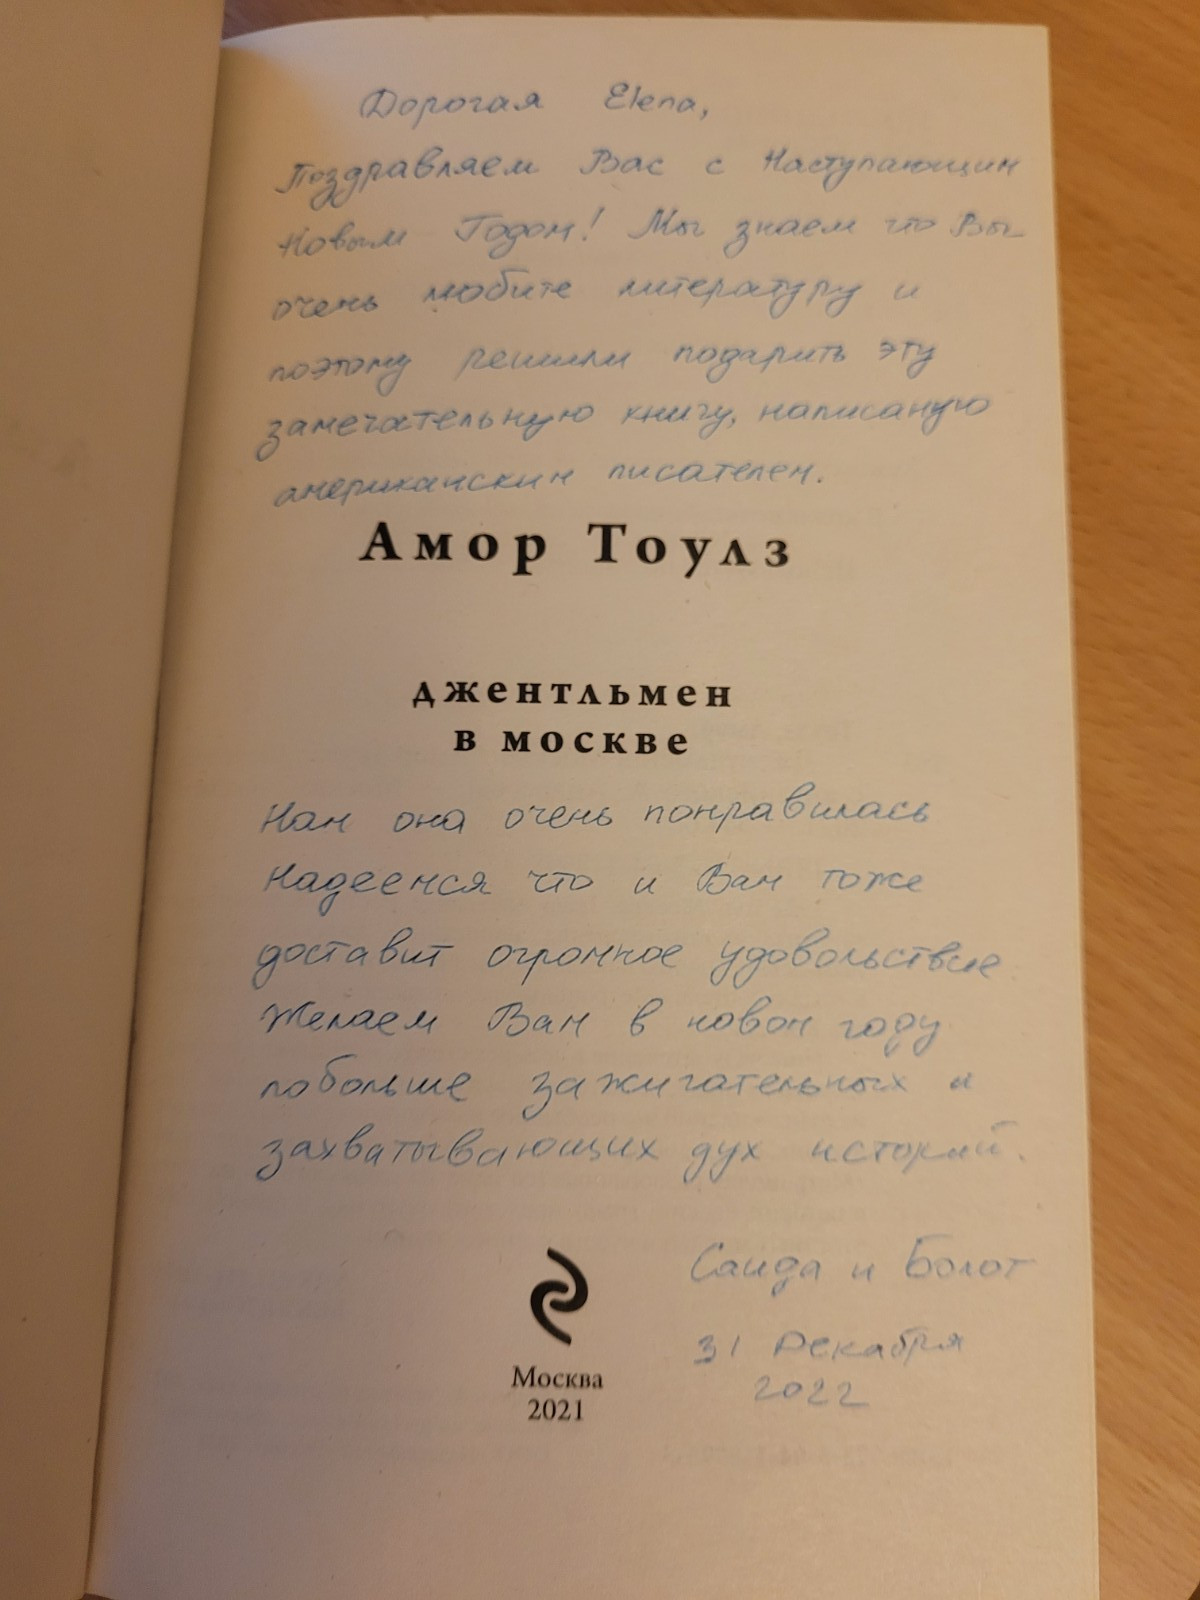 Дорогая Elena,
Поздравляем Вас с Наступающим
Новым Годом! Мы знаем что Вы
очень любите литературу и
поэтому решили подарить эту
замечательную книгу, написаную
американским писателем.
Амор Тоулз
джентльмен
в москве
Нам она очень понравилась
Надеемся что и Вам тоже
доставит огромное удовольствие
Желаем Вам в новом году
побольше зажигательных и
захватывающих дух историй.
Саида и Болот
31 Декабря
2022
Москва
2021